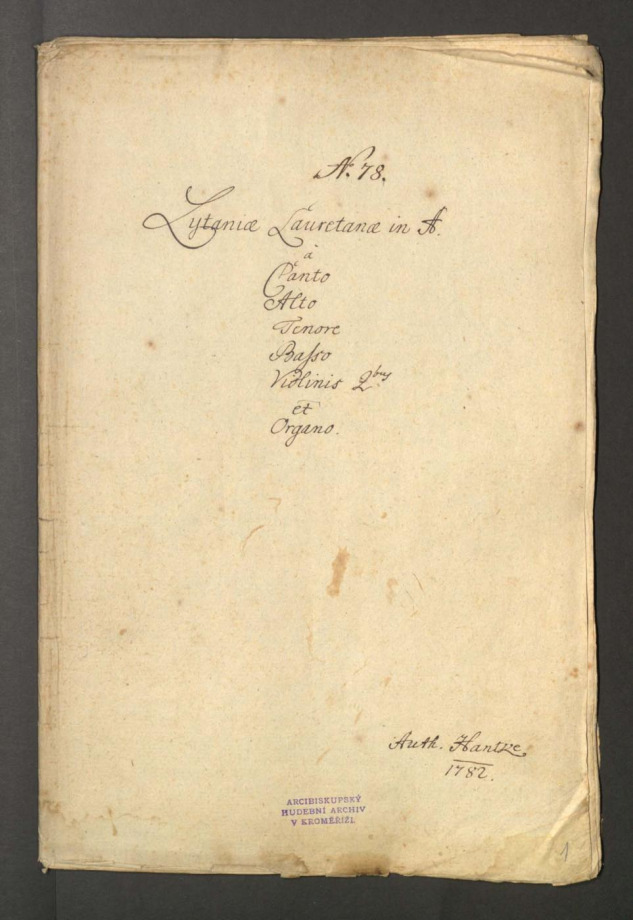 N: 78.
Lytaniæ Lauretanæ in A.
à
Canto
Alto
Tenore
Basso
Violinis 2bus
et
Organo.
Auth. Hantke
1782.
ARCIBISKUPSKÝ
HUDEBNÍ ARCHIV
V KROMĚŘÍŽI.
1